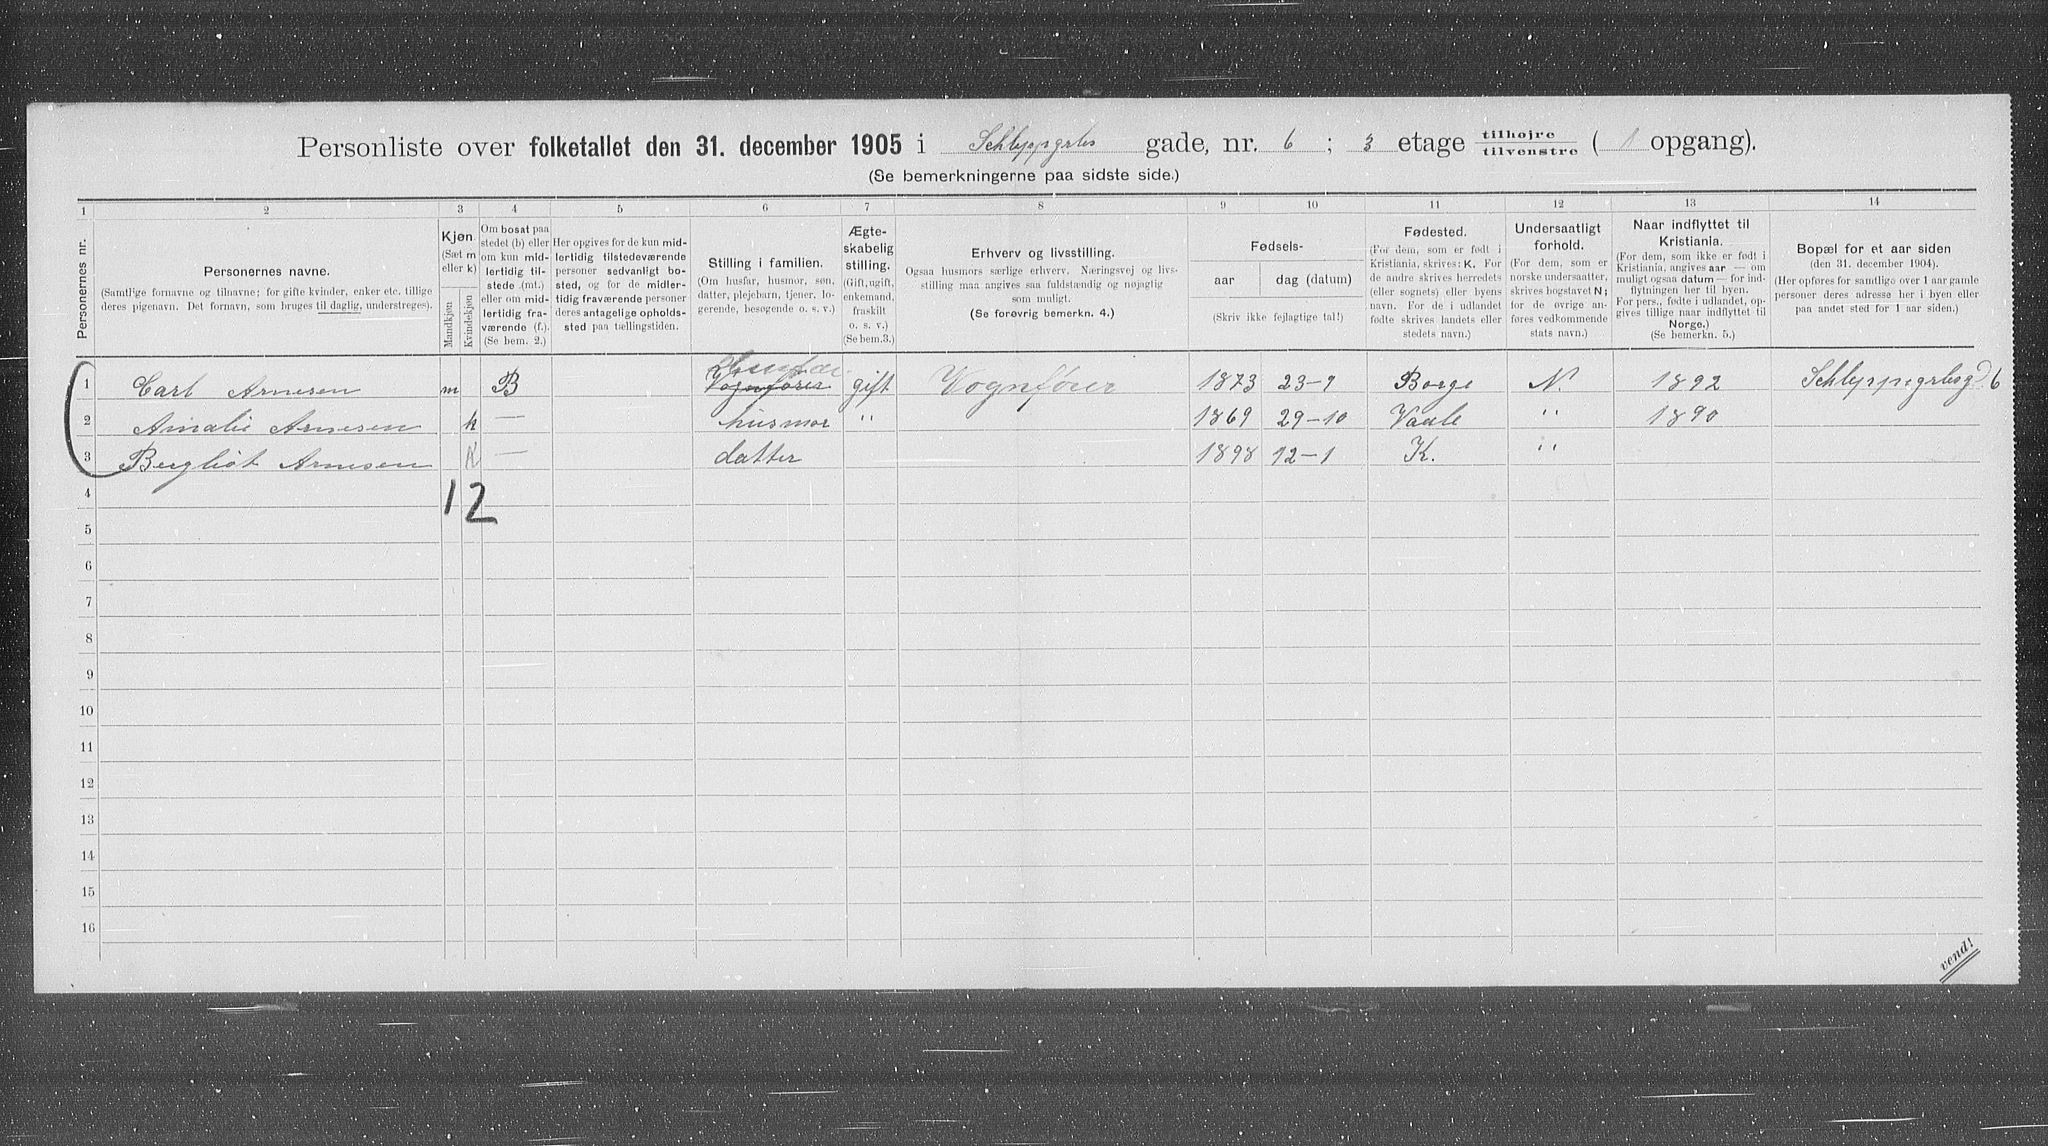 Personliste over folketallet den 31. december 1905 i Schleppegrles gade, nr. 6 ; 3 etage tilhøjre tilvenstre ( 1 opgang).
(Se bemerkningerne paa sidste side.)
1 2 3 4 5 6 7 8 9 10 11 12 13 14
Personernes nr.
Personernes navne.
(Samtlige fornavne og tilnavne; for gifte kvinder, enker etc. tillige
deres pigenavn. Det fornavn, som bruges til daglig, understreges).
Kjøn.
(Sæt m
eller k)
Mandkjøn
Kvindekjøn
Om bosat paa
stedet (b) eller
om kun mid-
lertidig til-
stede (mt.)
eller om mid-
lertidig fra-
værende (f.).
(Se bem. 2.)
Her opgives for de kun mid-
lertidig tilstedeværende
personer sedvanligt bo-
sted, og for de midler-
tidig fraværende personer
deres antagelige opholds-
sted paa tællingstiden.
Stilling i familien.
(Om husfar, husmor, søn,
datter, plejebarn, tjener, lo-
gerende, besøgende o. s. v.)
Ægte-
skabelig
stilling.
(Gift, ugift,
enkemand,
fraskilt
o. s. v.)
(Se bem.3.)
Erhverv og livsstilling.
Ogsaa husmors særlige erhverv. Næringsvej og livs-
stilling maa angives saa fuldstændig og nøjagtig
som muligt.
(Se forøvrig bemerkn. 4.)
Fødsels-
aar dag (datum)
(Skriv ikke fejlagtige tal!)
Fødested.
(For dem, som er født i
Kristiania, skrives: K. For
de andre skrives herredets
(eller sognets) eller byens
navn. For de i udlandet
fødte skrives landets eller
stedets navn.)
Undersaatligt
forhold.
(For dem, som er
norske undersaatter,
skrives bogstavet N;
for de øvrige an-
føres vedkommende
stats navn.)
Naar indflyttet til
Kristiania.
(For dem, som ikke er født i
Kristiania, angives aar — om
muligt ogsaa datum — for ind-
flytningen her til byen.
For pers., fødte i udlandet, op-
gives tillige naar indflyttet til
Norge.)
(Se bemerkn. 5.)
Bopæl for et aar siden
(den 31. december 1904).
(Her opføres for samtlige over 1 aar gamle
personer deres adresse her i byen eller
paa andet sted for 1 aar siden.)
Husfar
1 Carl Arnesen m B Vognfører gift Vognfører 1873 23-9 Borge N. 1892 Schleppegrlesgd. 6
2 Amalie Arnesen k — husmor " 1869 29-10 Vaale " 1890
3 Bergliot Arnesen K — datter 1898 12-1 K. "
4
1 2
5
6
7
8
9
10
11
12
13
14
15
16
vend!